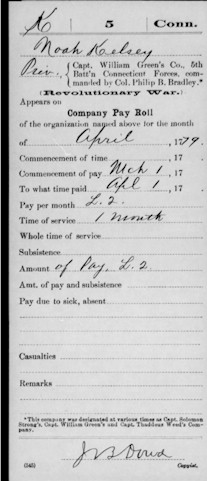 K | 5 | Conn.
Noah Kelsey
Priv., { Capt. William Green's Co., 5th
Batt'n Connecticut Forces, com-
manded by Col. Philip B. Bradley.*
(Revolutionary War.)
Appears on
Company Pay Roll
of the organization named above for the month
of April, 1779.
Commencement of time, 17
Commencement of pay Mch 1, 17
To what time paid Apl 1, 17
Pay per month £. 2.
Time of service 1 month
Whole time of service
Subsistence
Amount of Pay, £. 2.
Amt. of pay and subsistence
Pay due to sick, absent
Casualties
Remarks
*This company was designated at various times as Capt. Solomon
Strong's, Capt. William Green's and Capt. Thaddeus Weed's Com-
pany.
J B Dowd
(545) Copyist.